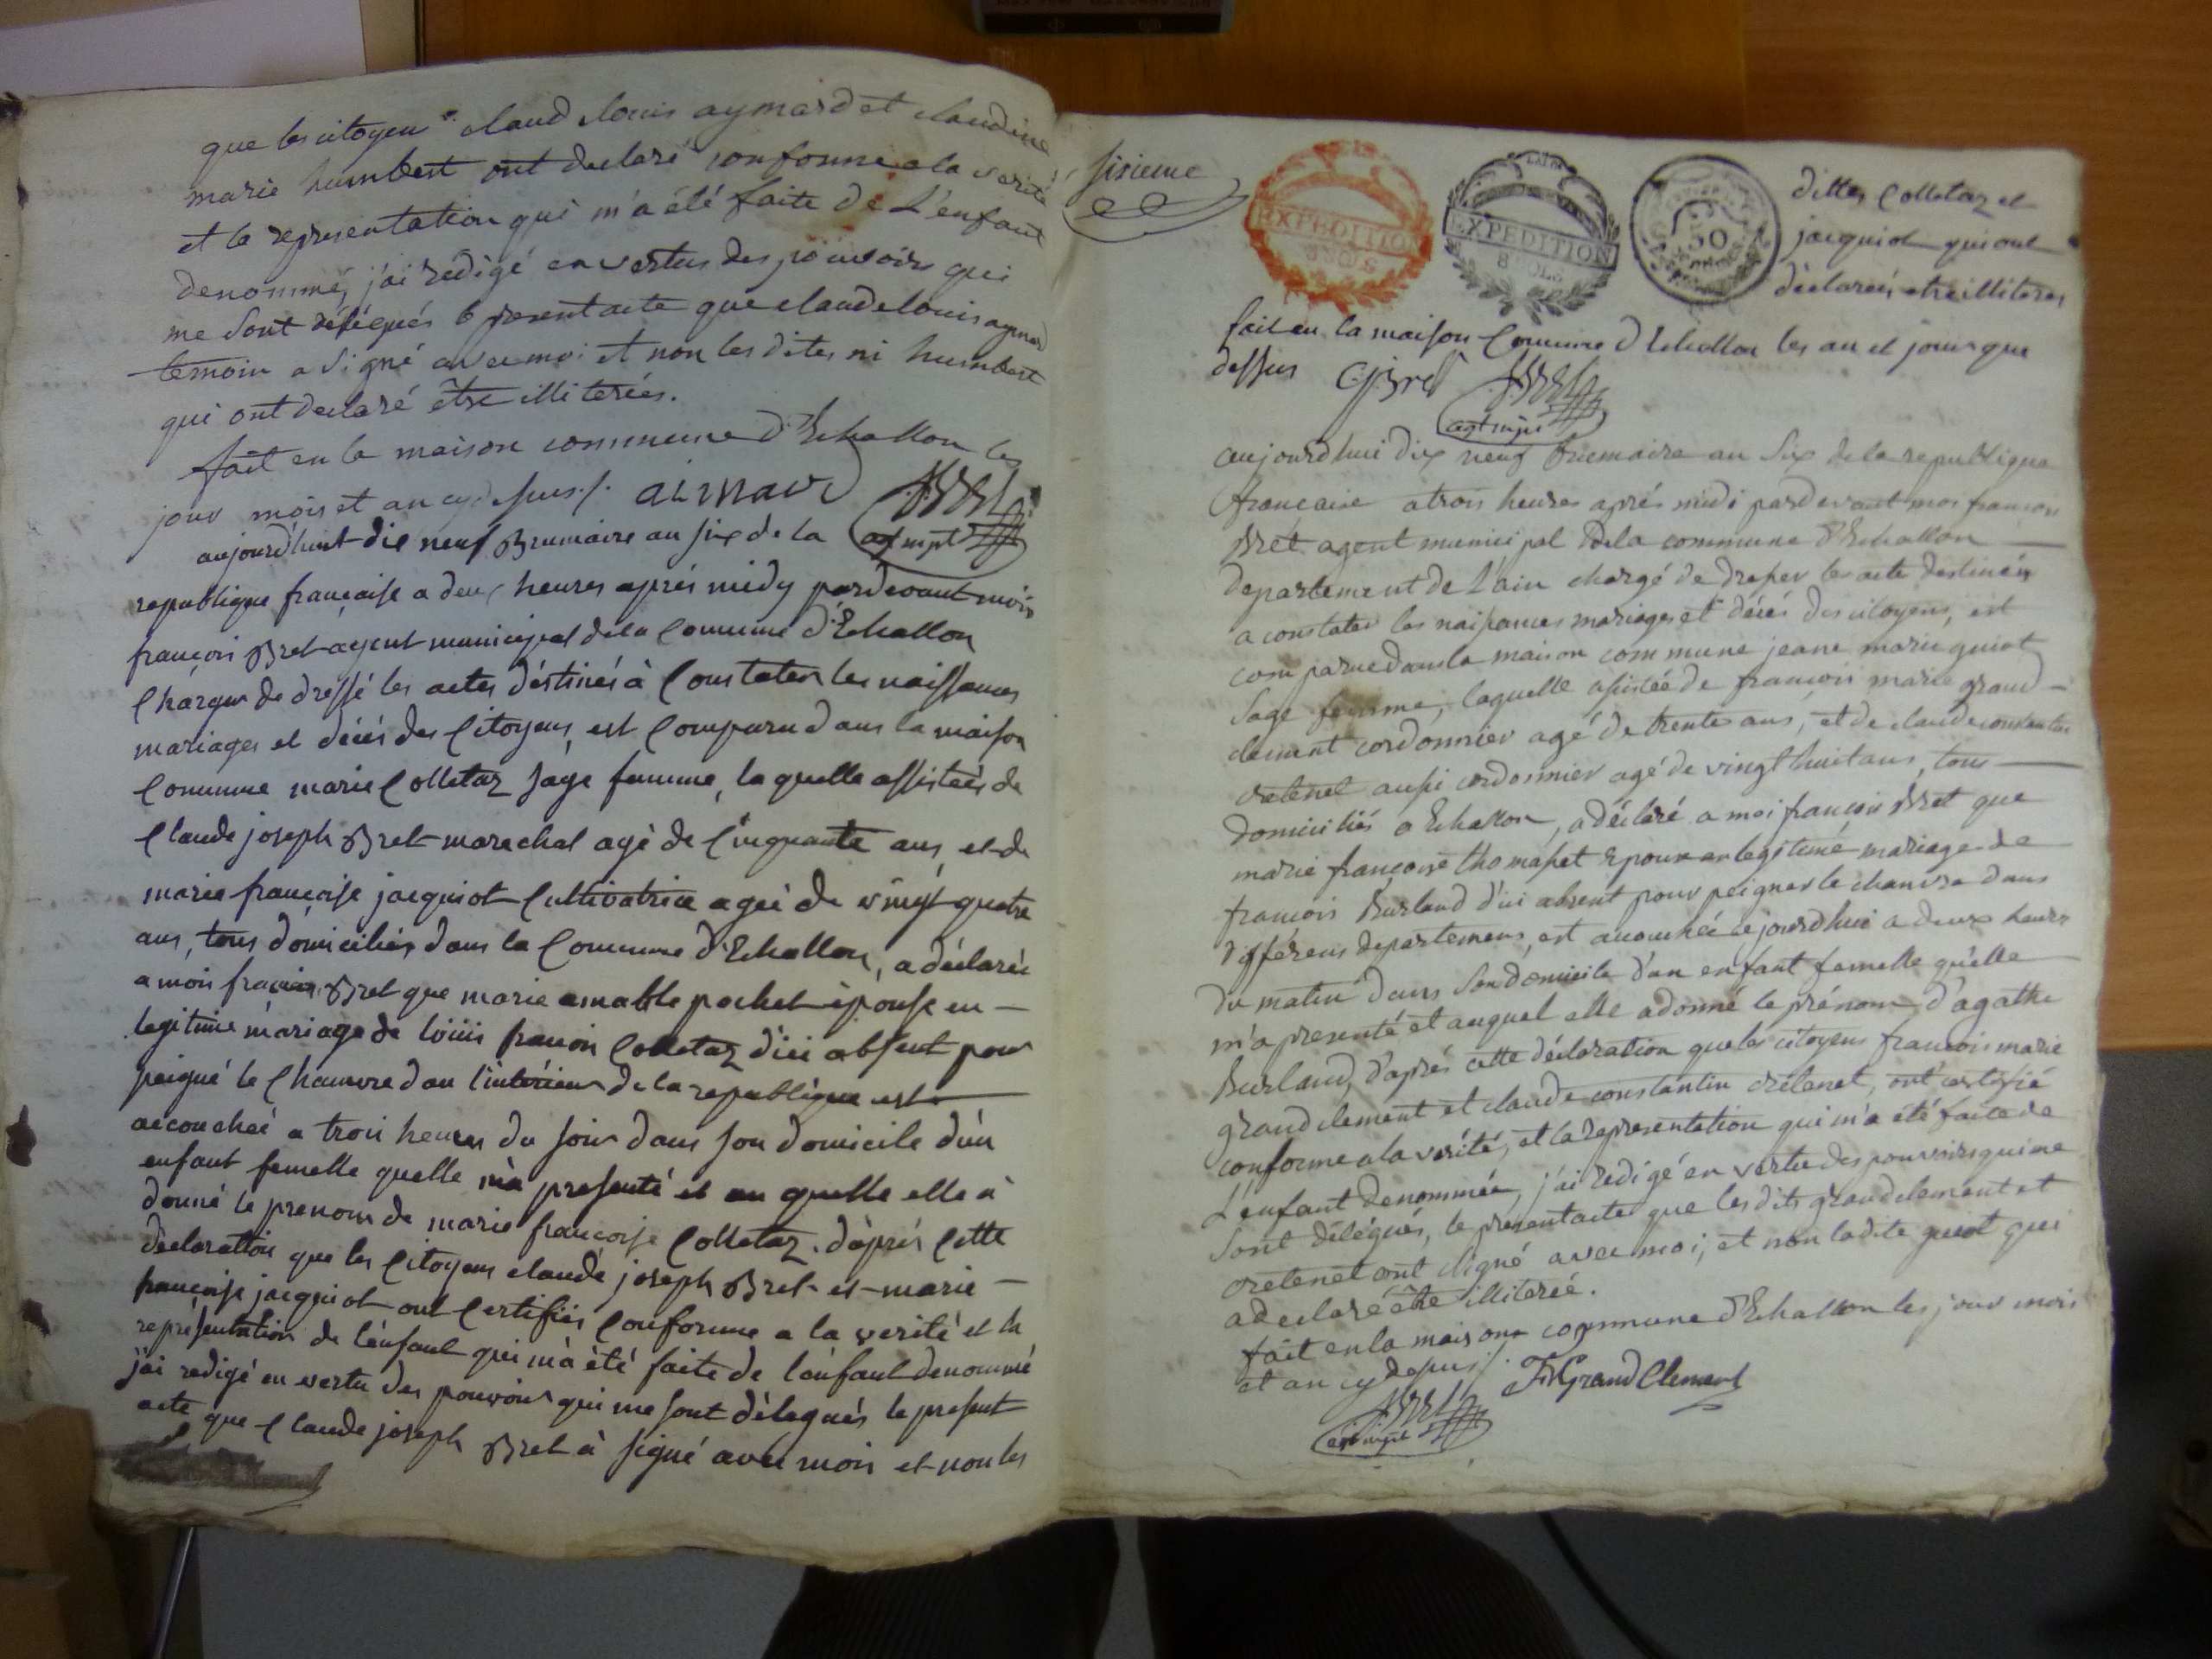 que les citoyen claud louis aymard et claudine
marie humbert ont declaré conforme a la verité
et la representation qui m'a été faite de L'enfant
denommé, j'ai redigé en vertus des pouvoirs qui
me sont délégués le present acte que claude louis aymard
temoin a signé avec moi et non les dites ni humbert
qui ont declaré être illiterées.
fait en la maison commune d'Echallon les
jour mois et an cydessus ./. aimard Bret
agt mpl
aujourd'huit die neuf Brumaire an six de la
republique françaisse a deux heures aprés midy pardevant mois
françois Bret agent municipal dela Commune d'Echallon
Chargér de dressé les actes déstinés à Constater les naissances
mariages et décés des Citoyens, est Comparu dans la maison
Commune marie Colletaz sage femme, la quelle assisteés de
Claude joseph Bret marechal agé de Cinquante ans et de
marie françoise jacquiot Cultivatrice ageé de vingt quatre
ans, tous domiciliés dans la Commune d'Echallon, a déclareé
a mois françois Bret que marie amable pochet épouse en —
legitime mariage de louis françois Colletaz d'ici absent pour
peigné le Chanvre dan l'intérieur de la republique est
accoucheé a trois heures du soir dans son domicile d'un
enfant femelle quelle m'a presenté et au quelle elle à
donné le prenom de marie françoise Colletaz. d'après Cette
declaration que les Citoyens claude joseph Bret et marie —
françoise jacquiot ont Certifiés Conforme a la verité et la
représentation de l'enfant qui m'à été faite de l'enfant denommé
j'ai redigé en vertu des pouvoirs qui me sont délegués le present
acte que Claude joseph Bret à signé avec mois et non les
sisieme
EXPEDITION
8 SOLS
EXPEDITION
8 SOLS
50
dittes Colletaz et
jacquiot qui ont
déclareés etre illiterés
fait en la maison Commune d'Echallon les an et jour que
dessus CJ Bret Bret
agt mpl
aujourdhui dix neuf brumaire an Six de la republique
francaise a trois heures aprés midi pardevant moi francois
Bret agent municipal de la commune d'Echallon
departement de L'ain chargé de dresser les acte destinés
a constater les naissances mariages et décés des citoyens, est
comparue dans la maison commune jeane marie guiot
Sage femme, laquelle assistée de francois marie grand-
clement cordonnier agé de trente ans, et de claude constantin
cretenet aussi cordonnier agé de vingt huit ans, tous
domiciliés a Echallon, a déclaré a moi francois Bret que
marie françoise thomasset Epouse en legitime mariage de
francois Burland d'ici absent pour peigner le chanvre dans
différens departemens, est accouchée cejourdhui a deux heures
du matin dans Son domicile d'un enfant femelle qu'elle
m'a presenté et auquel elle a donné le prénom d'agathe
Burland, d'aprés cette déclaration que les citoyens francois marie
grand clement et claude constantin crétenet, ont certifié
conforme a la vérité, et la representation qui m'a été faite de
L'enfant denommée, j'ai redigé en vertu des pouvoirs qui me
Sont délégués, le present acte que les dits grandclement et
cretenet ont signé avec moi, et non ladite guiot qui
a declaré être illiterée.
fait en la maison commune d'Echallon les jour mois
et an cydessus ./. FM GrandClement
Bret
agt mpl